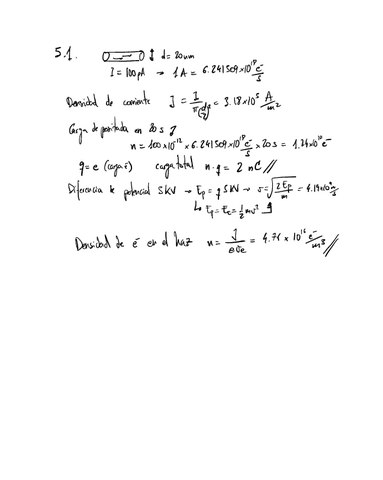 5.1. d = 20 nm
I = 100 pA → 1A = 6.241509×10¹⁸ e⁻/s
Densidad de corriente J = I/π(d/2)² = 3.18×10⁵ A/m²
Carga depositada en 20 s
n = 100×10⁻¹² × 6.241509×10¹⁸ e⁻/s × 20 s = 1.24×10¹⁰ e⁻
q = e (carga e⁻) carga total n·q = 2 nC //
Diferencia de potencial 5KV → Ep = q 5KV → v = √(2Ep/m) = 4.19×10⁷ m/s
↳ Ep = Ec = ½mv²
Densidad de e⁻ en el haz n = J/eve = 4.74 × 10¹⁶ e⁻/m³ //